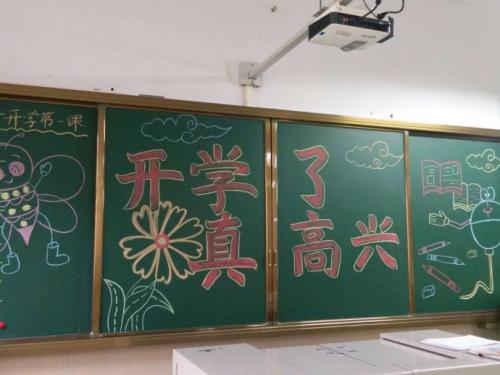 开学第一课
开学了
真高兴